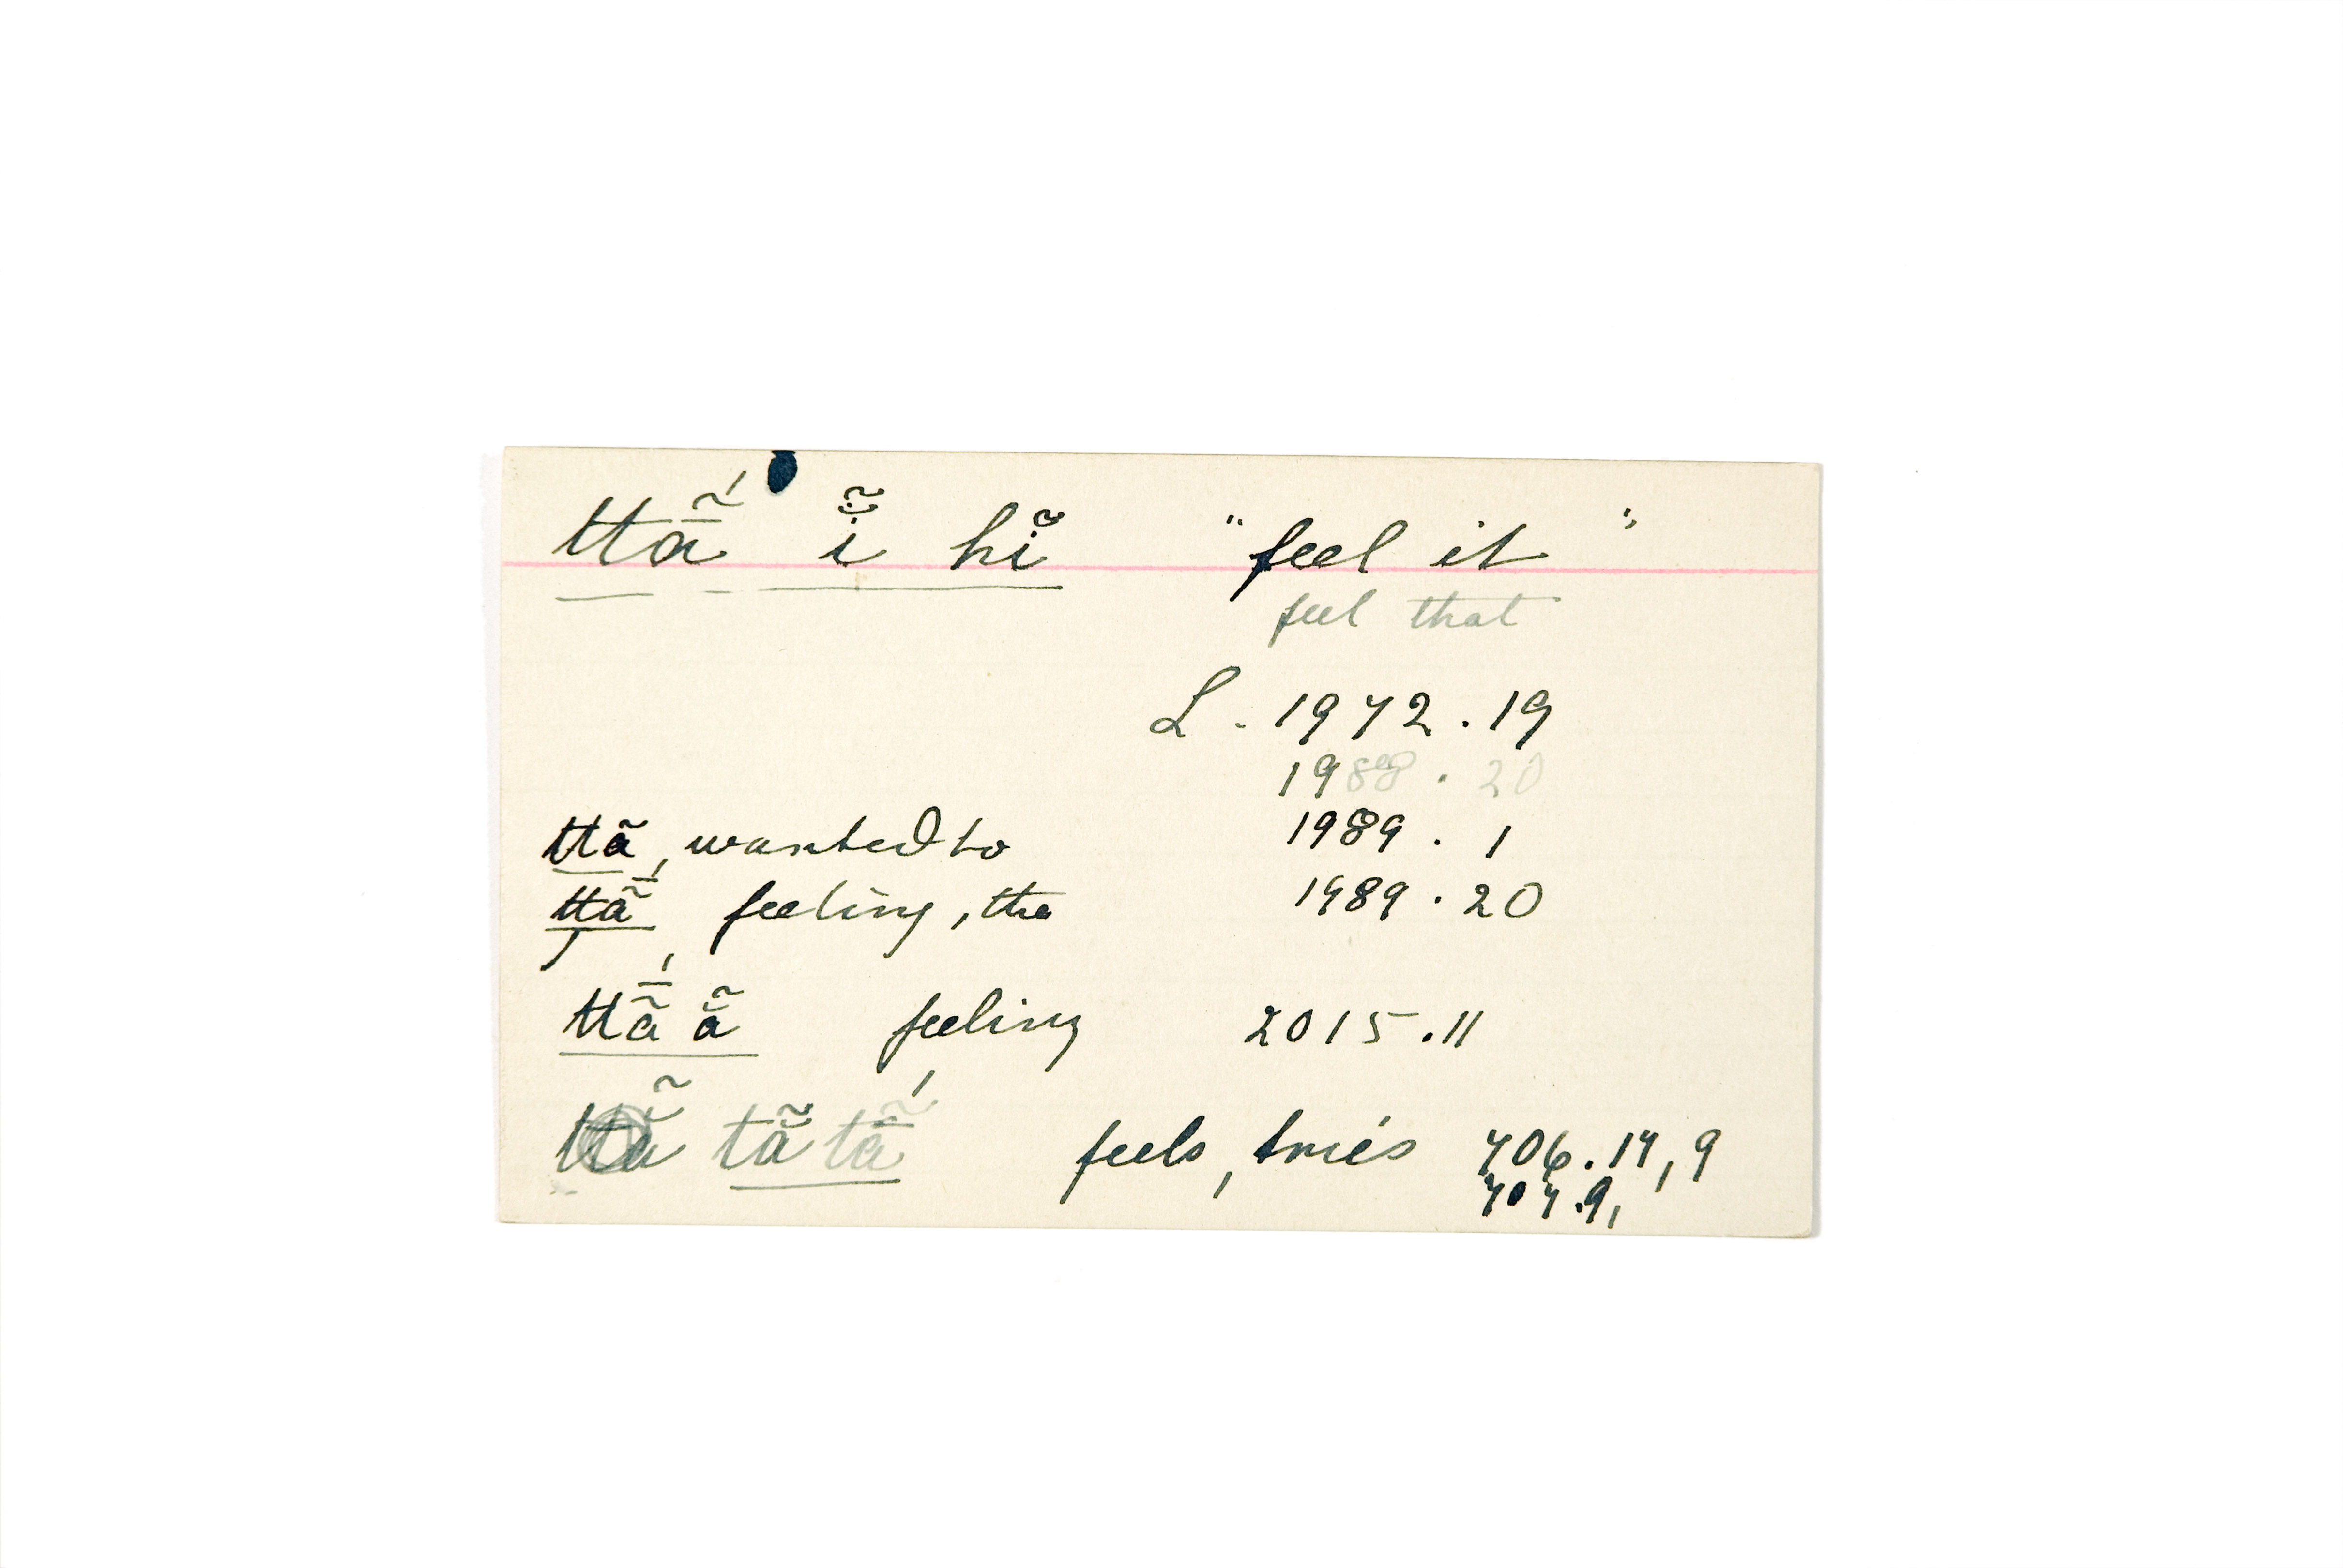 ttã̄́ ĩ̆ hĩ "feel it"
feel that
L. 1972.19
1988.20
ttã, wanted to 1989.1
ttã̄́ feeling, the 1989.20
ttã̄́ ã feeling 2015.11
ttã tã tã́ feels, tries 706.17,9
707.9,